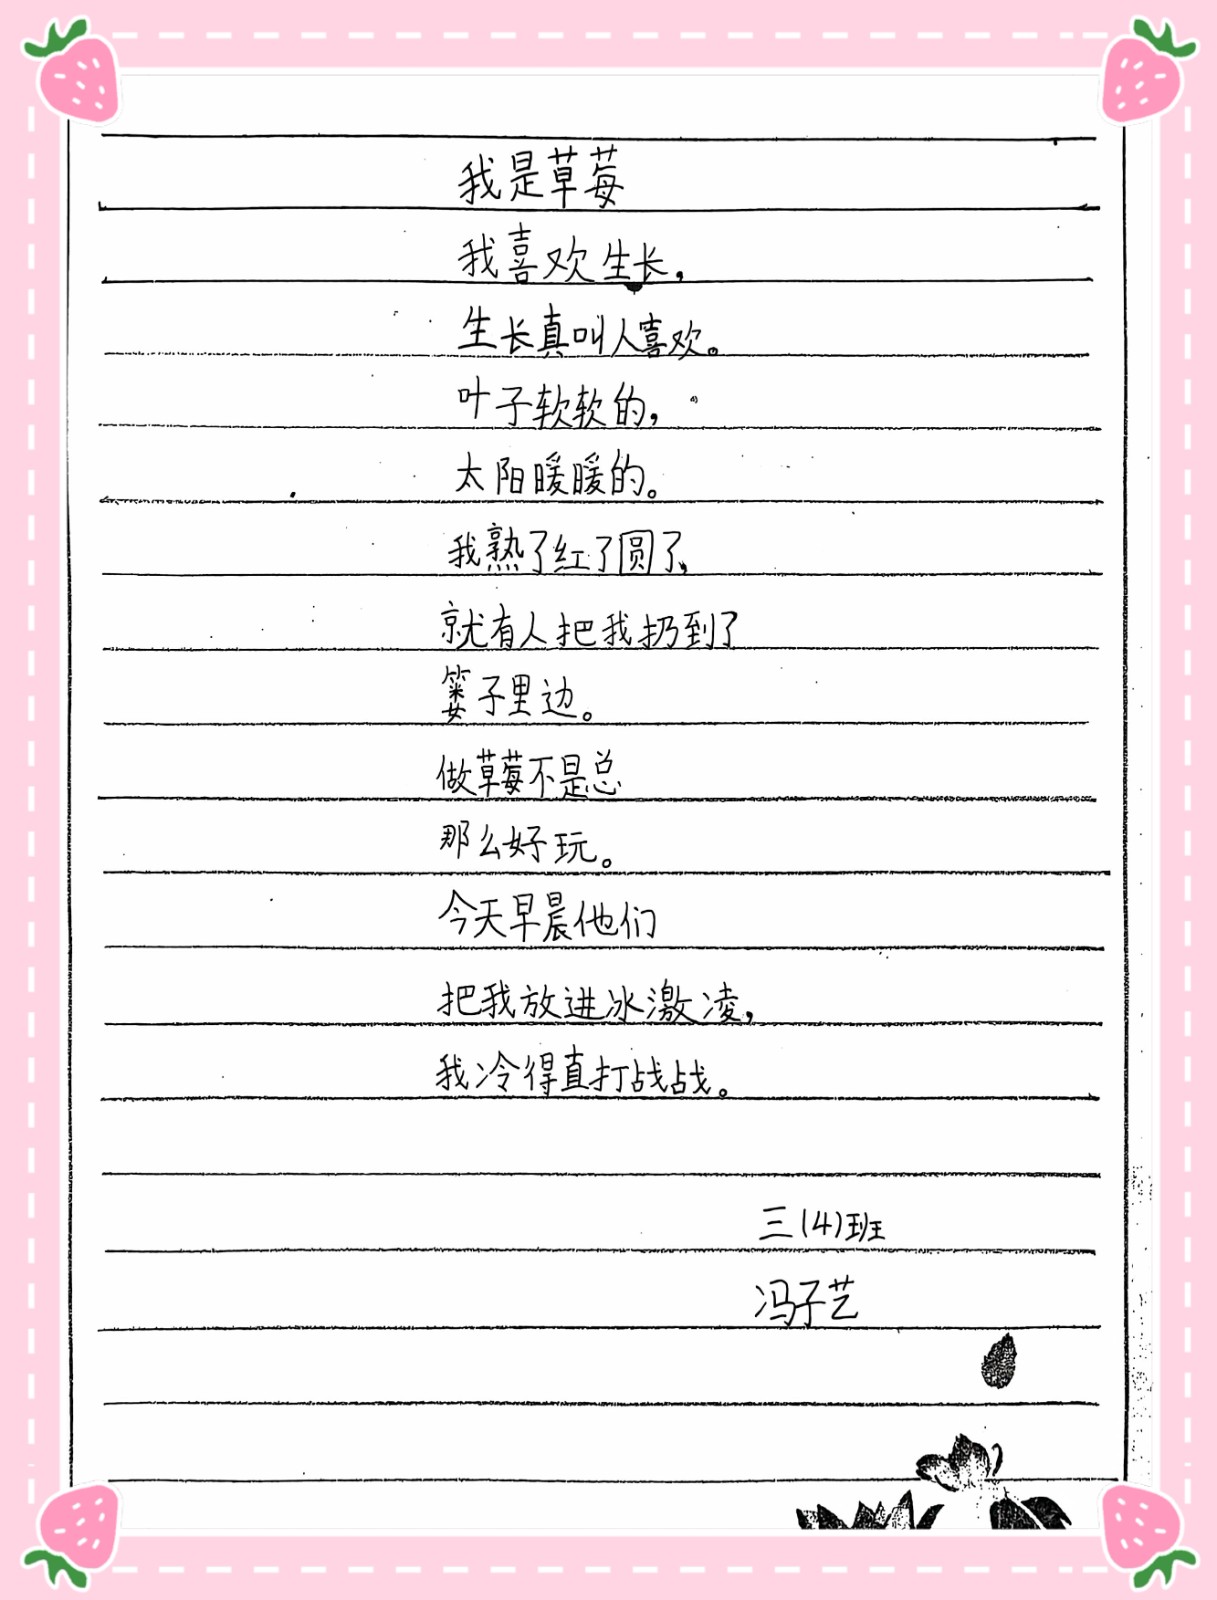 我是草莓
我喜欢生长，
生长真叫人喜欢。
叶子软软的，
太阳暖暖的。
我熟了红了圆了，
就有人把我扔到了
篓子里边。
做草莓不是总
那么好玩。
今天早晨他们
把我放进冰激凌，
我冷得直打战战。
三(4)班
冯子艺